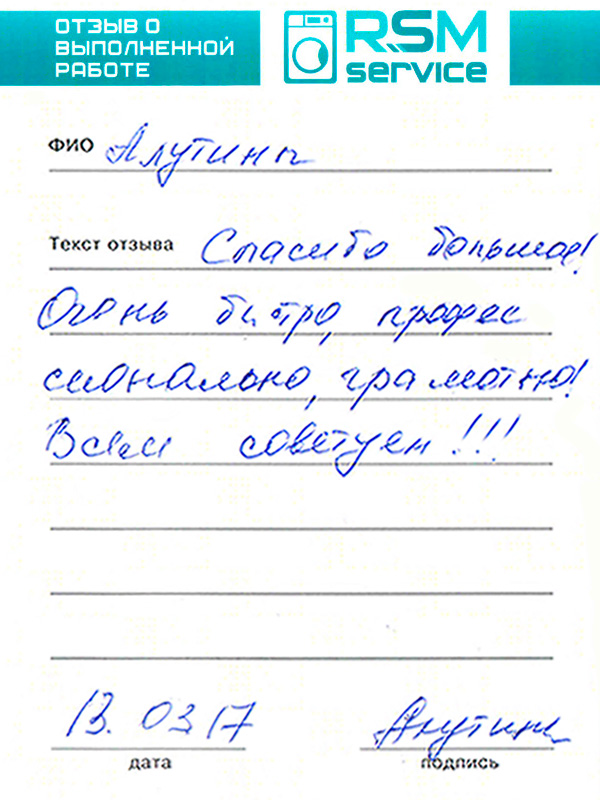 ОТЗЫВ О
ВЫПОЛНЕННОЙ
РАБОТЕ
RSM
service
ФИО Алутины
Текст отзыва Спасибо большое!
Очень быстро, профес
сионально, грамотно!
Всем советуем!!!
13.03 17
дата
Алутины
подпись